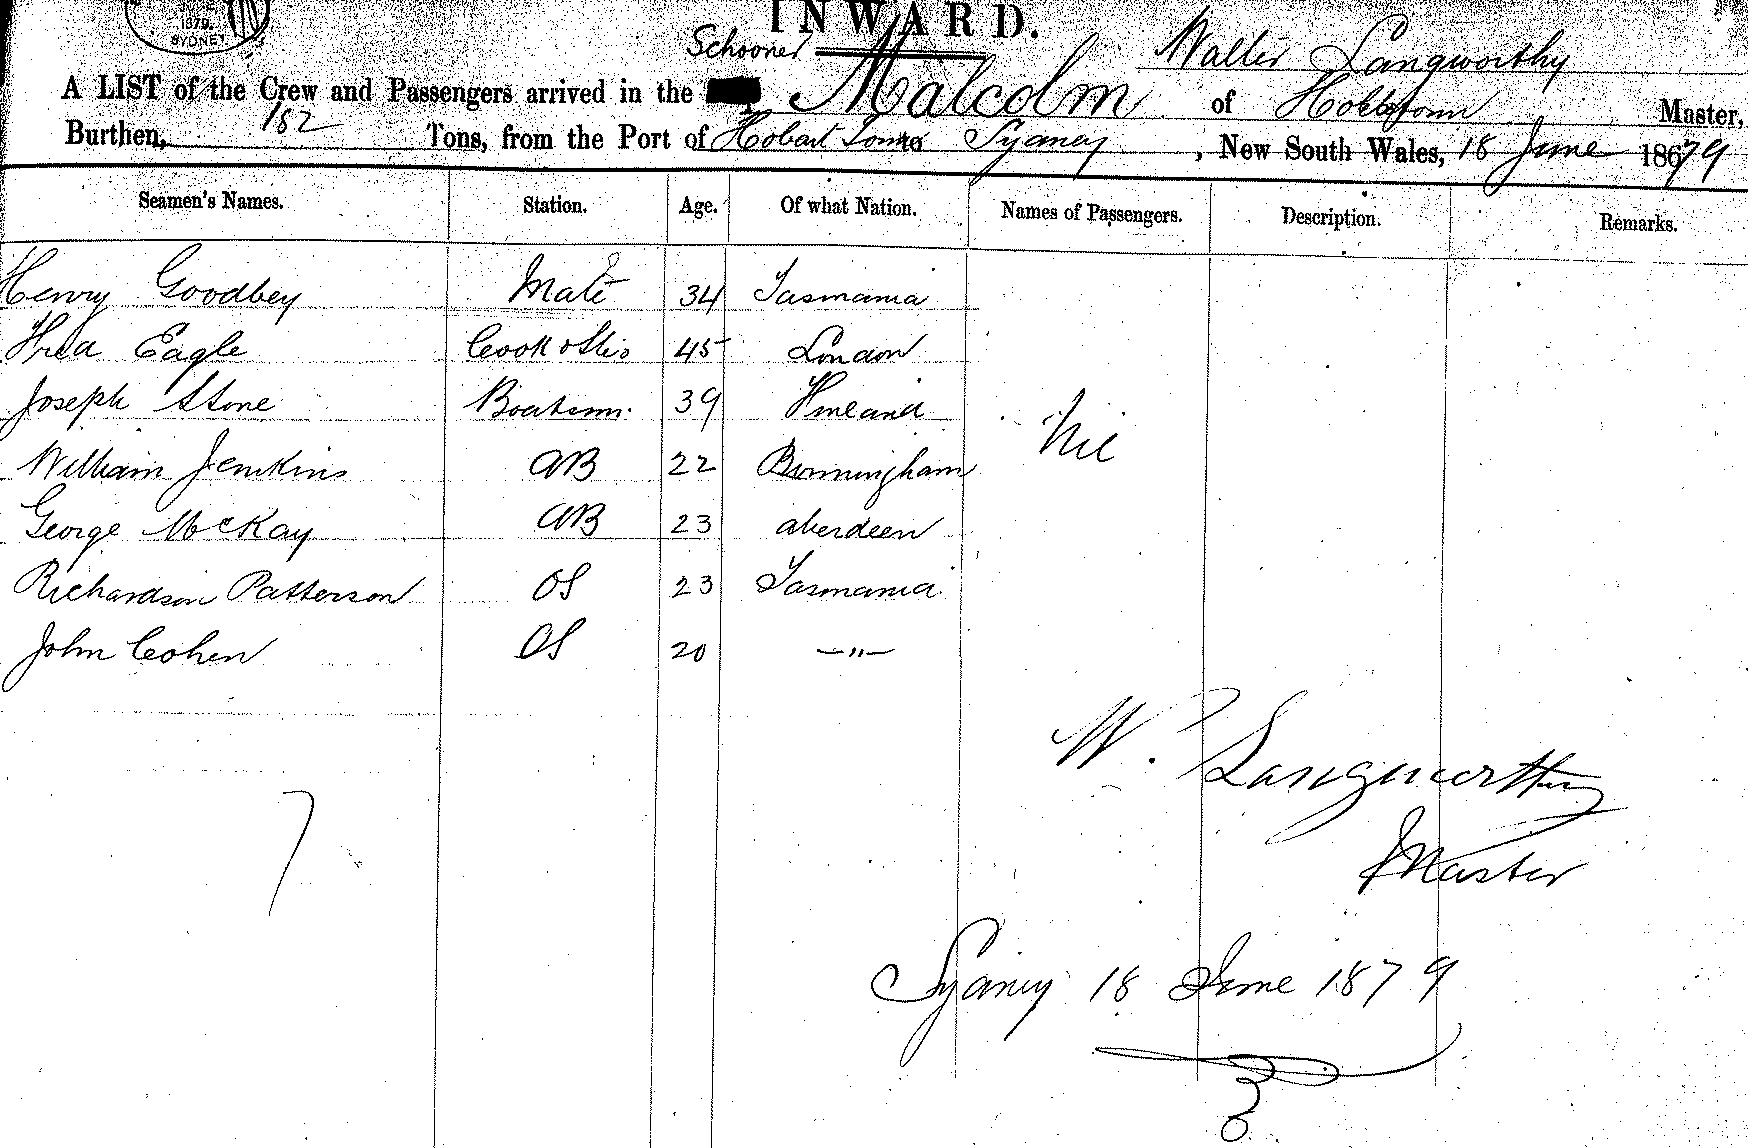 1879
SYDNEY
INWARD.
Schooner
Walter Langworthy
A LIST of the Crew and Passengers arrived in the Malcolm of Hobarttown Master,
Burthen, 182 Tons, from the Port of Hobart Town to Sydney, New South Wales, 18 June 1879
Seamen's Names. Station. Age. Of what Nation. Names of Passengers. Description. Remarks.
Henry Goodbey Mate 34 Tasmania
Fred Eagle Cook & Sto 45 London
Joseph Stone Boatswn. 39 Finland
Nil
William Jenkins AB 22 Birmingham
George McKay AB 23 aberdeen
Richardson Patterson OS 23 Tasmania
John Cohen OS 20 —"—
W. Langworthy
Master
7
Sydney 18 June 1879